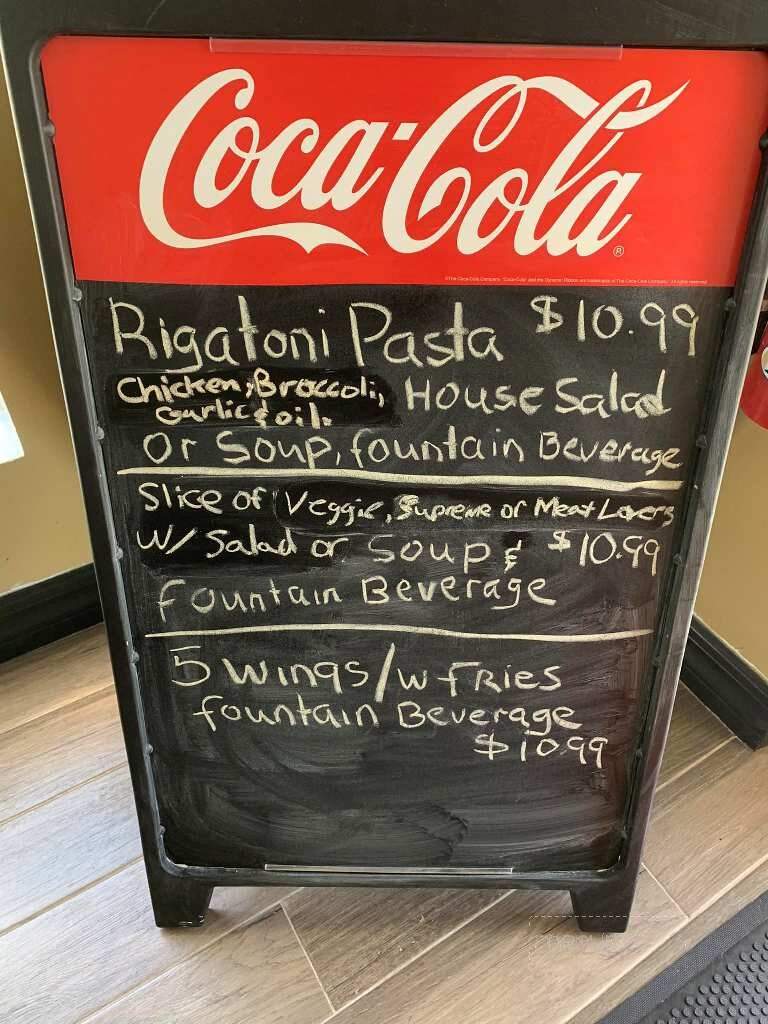 Coca-Cola®
Rigatoni Pasta $10.99
Chicken, Broccoli, House Salad
Garlic & oil.
Or Soup, fountain Beverage
Slice of Veggie, Supreme or Meat Lovers
W/ Salad or Soup & $10.99
Fountain Beverage
5 Wings/w FRies
fountain Beverage
$10.99